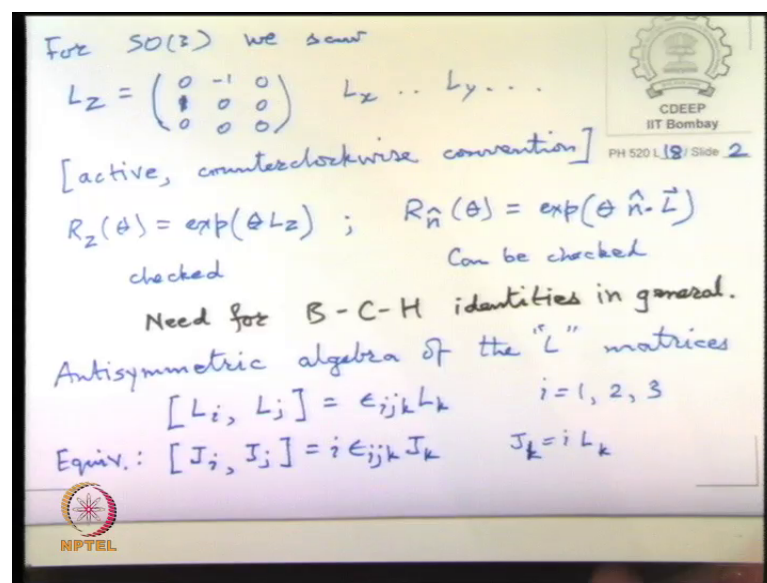 For SO(3) we saw
L_z = ( 0 -1 0 ; 1 0 0 ; 0 0 0 )   L_x .. L_y ...
CDEEP
IIT Bombay
[active, counterclockwise convention]
PH 520 L 18 / Slide 2
R_z(θ) = exp(θ L_z) ;   R_n̂(θ) = exp(θ n̂·L⃗)
checked   Can be checked
Need for B-C-H identities in general.
Antisymmetric algebra of the "L" matrices
[L_i, L_j] = ε_ijk L_k   i = 1, 2, 3
Equiv.: [J_i, J_j] = i ε_ijk J_k   J_k = i L_k
NPTEL